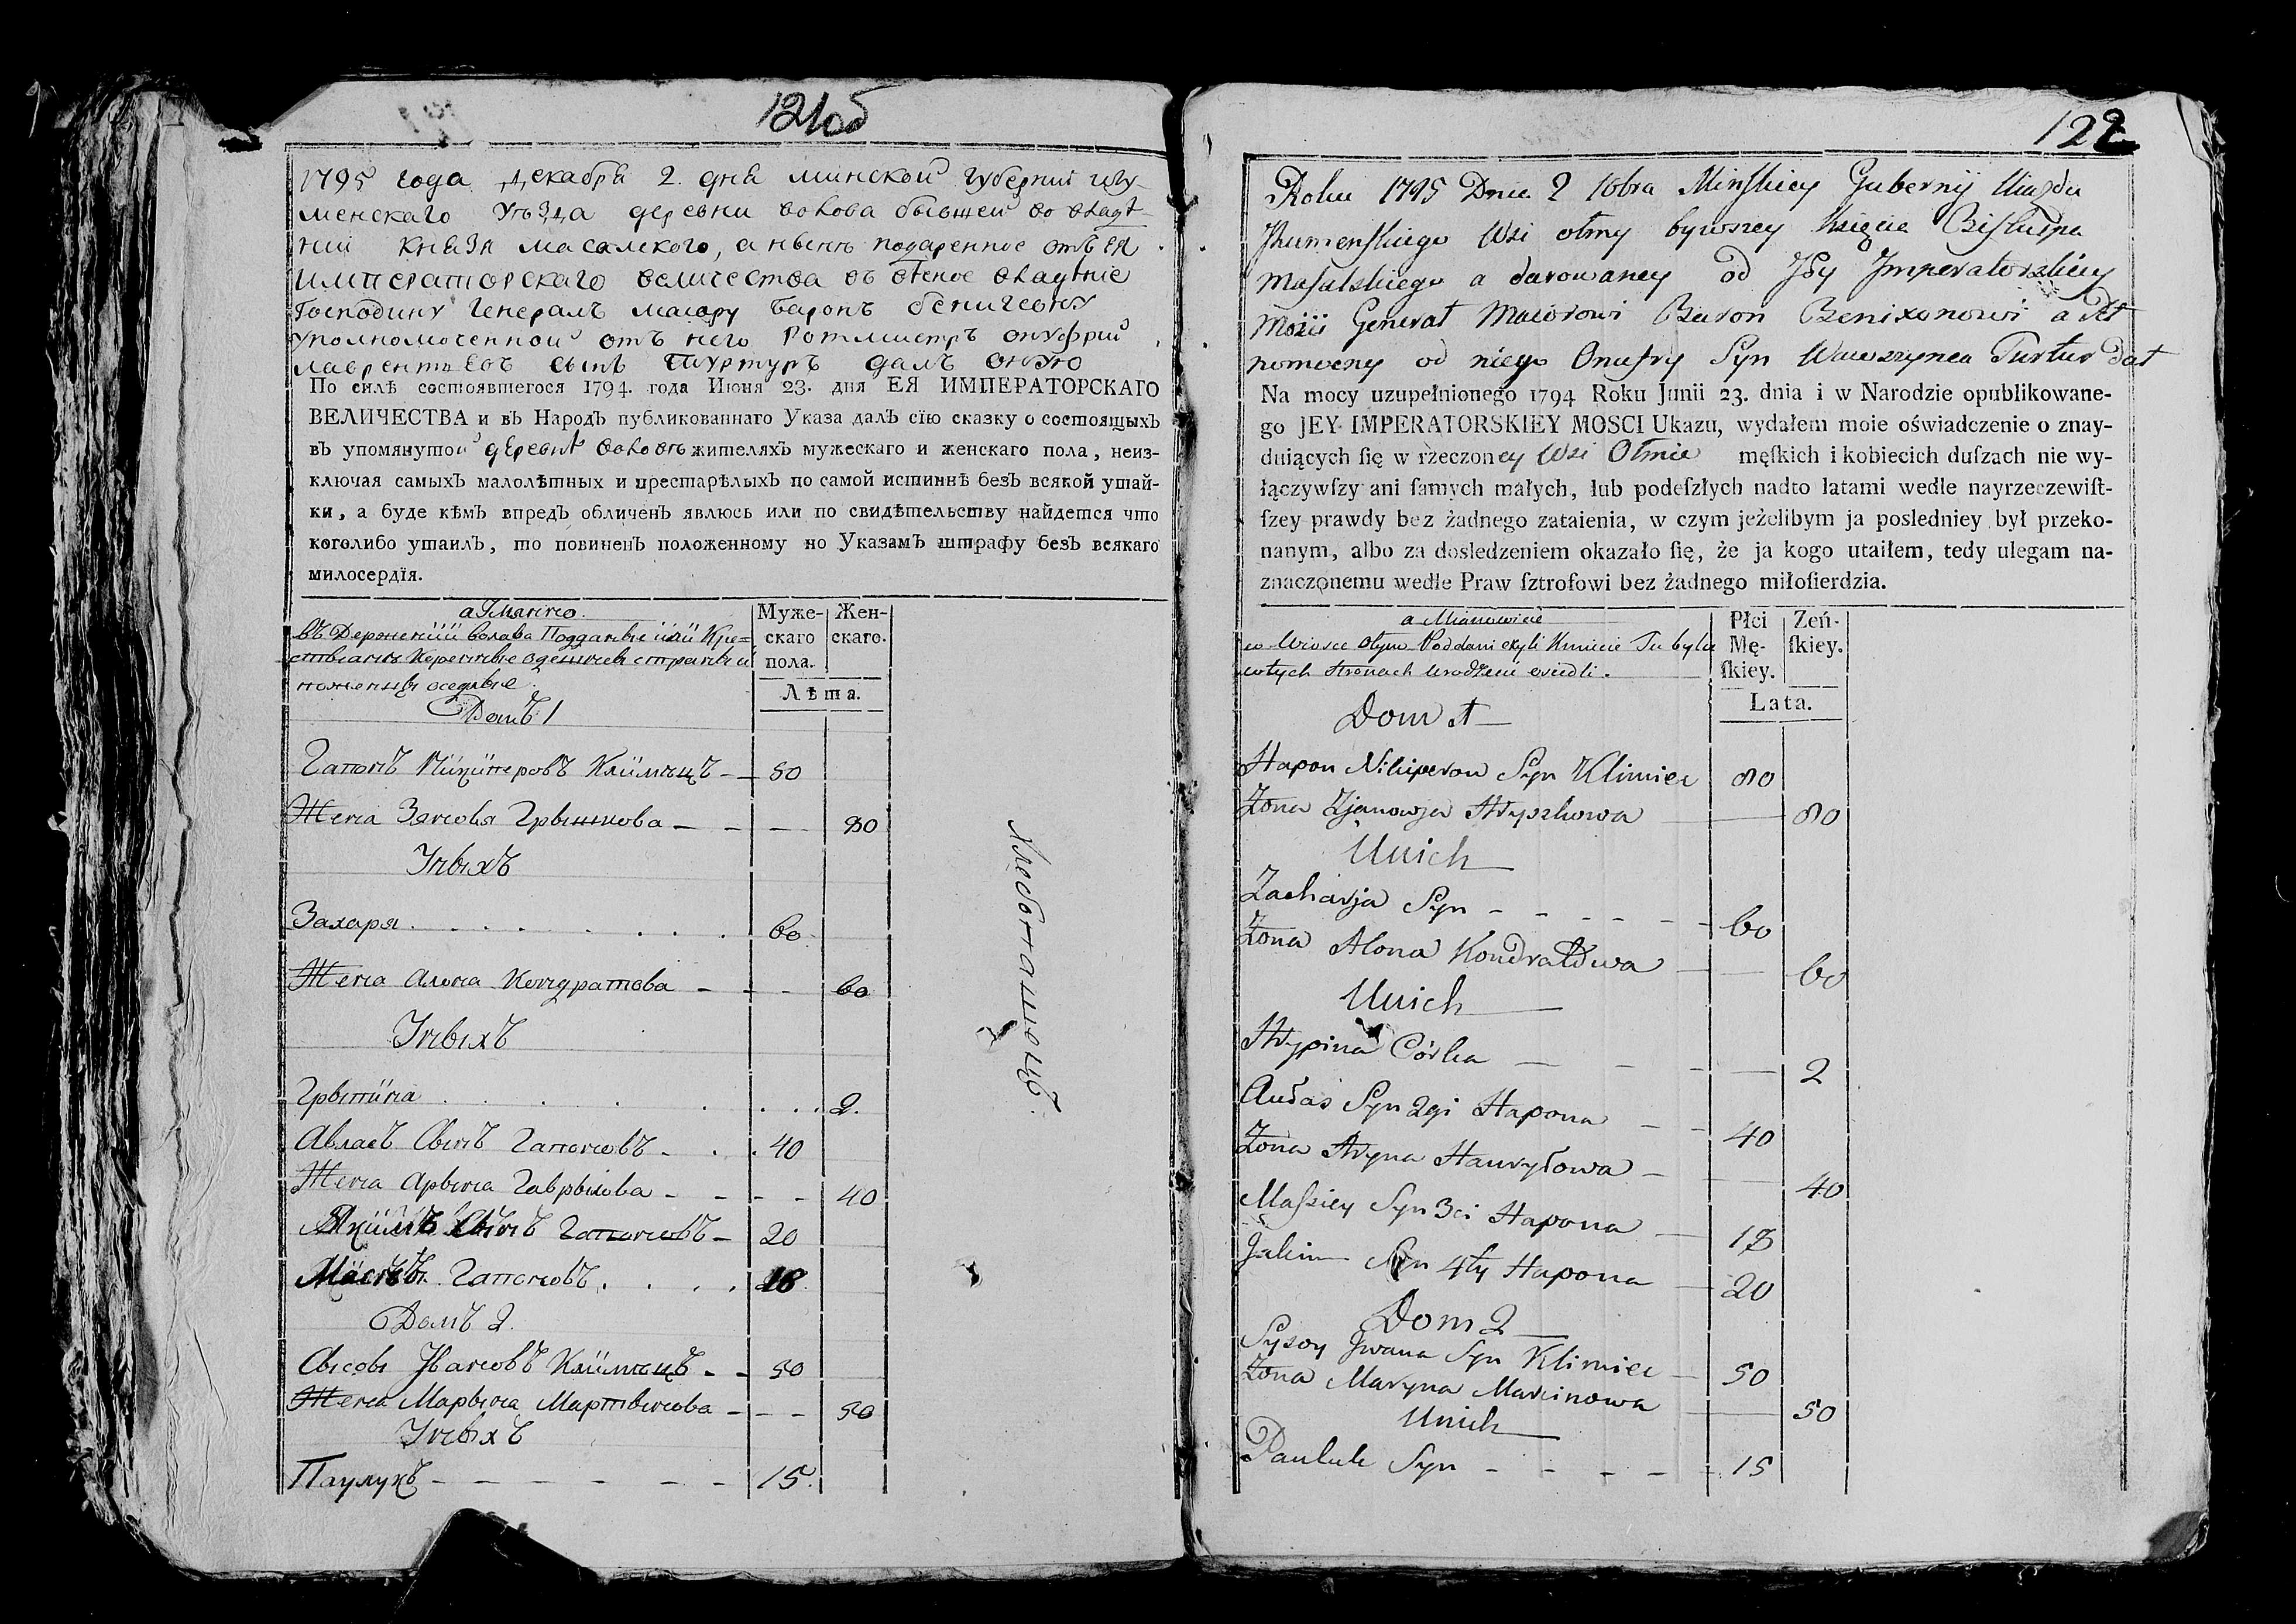 121об
1795 года декабря 2. дня минской губернии игу-
менскаго уъзда деревни вокова бывшей во владѣ-
нии князя масалского, а нынѣ подаренное отъ ЕЯ
императорскаго величества въ вѣчное владѣние
Господину Генералъ маиору баронъ бенигсону
уполномоченной отъ него Ротмистръ онуфрий
лаврентьевъ сынъ Туртуръ далъ оную
По силѣ состоявшегося 1794. года Июня 23. дня ЕЯ ИМПЕРАТОРСКАГО
ВЕЛИЧЕСТВА и въ Народъ публикованнаго Указа далъ сїю сказку о состоящыхъ
въ упомянутой деревнѣ воковѣ жителяхъ мужескаго и женскаго пола, неиз-
ключая самыхъ малолѣтных и престарѣлыхъ по самой истиннѣ безъ всякой утай-
ки, а буде кѣмъ впредъ обличенъ явлюсь или по свидѣтельству найдется что
коголибо утаилъ, то повиненъ положенному по Указамъ штрафу безъ всякаго
милосердїя.
а Имянно
въ Деревне Подданые или Кре=
стьянѣ Коренные здешней страны и
оседлые
Муже-
скаго
пола.
Жен-
скаго.
Лѣта.
Домъ 1
Гапонъ Никипоровъ Климецъ - - 80
Жена Зяновья Грышкова - - - 80
Уныхъ
Захаря . . . . . . . 60
Жена Алона Кондратова - - - 60
Уныхъ
Грыпина . . . . . . . 2.
Авласъ Сынъ Гапоновъ - . . 40
Жена Арына Гаврылова - - - - 40
Якимъ Сынъ Гапоновъ - 20
Масѣй Гапоновъ . . . . 18
Домъ 2.
Сысой Ивановъ Климецъ - - 50
Жена Марына Мартынова - - - 50
Уныхъ
Паулукъ - - - - - - 15.
122
Roku 1795 Dnia 2 10bra Minskiey Gubernij Uiazdu
Jhumenskiego Wsi olmy bywszey księcia Biskupa
Masalskiego a darowaney od Jey Imperatorskiey
Mości Generał Maiorowi Baron Benixonowi a Pł
nomocny od niego Onufry Syn Wawrzynca Turtur dał
Na mocy uzupełnionego 1794 Roku Junii 23. dnia i w Narodzie opublikowane-
go JEY IMPERATORSKIEY MOSCI Ukazu, wydałem moie oświadczenie o znay-
duiących ſię w rzeczoney Wsi Olmie męſkich i kobiecich duſzach nie wy-
łączywſzy ani ſamych małych, łub podeſzłych nadto latami wedle nayrzeczewiſt-
ſzey prawdy bez żadnego zataienia, w czym jeżelibym ja posledniey był przeko-
nanym, albo za dosledzeniem okazało ſię, że ja kogo utaiłem, tedy ulegam na-
znaczonemu wedle Praw ſztrofowi bez żadnego miłoſierdzia.
a Mianowicie
w Wiosce Olym Poddani czyli Kmiecie Tu byli
w tych stronach urodzeni osiedli.
Płci
Mę-
ſkiey.
Zeń-
ſkiey.
Lata.
Dom 1
Hapon Nikiperow Syn Klimiec 80
Żona Zjanowja Hryszkowa 80
U nich
Zacharja Syn - - - - - - 60
Żona Alona Kondratowa 60
U nich
Hrypina Córka 2
Aułas Syn 2gi Hapona 40
Żona Aryna Hawryłowa 40
Massiey Syn 3ci Hapona 18
Jakim Syn 4ty Hapona 20
Dom 2
Sysoy Jwana Syn Klimiec 50
Żona Maryna Marcinowa 50
U nich
Pauluk Syn - - - - - 15